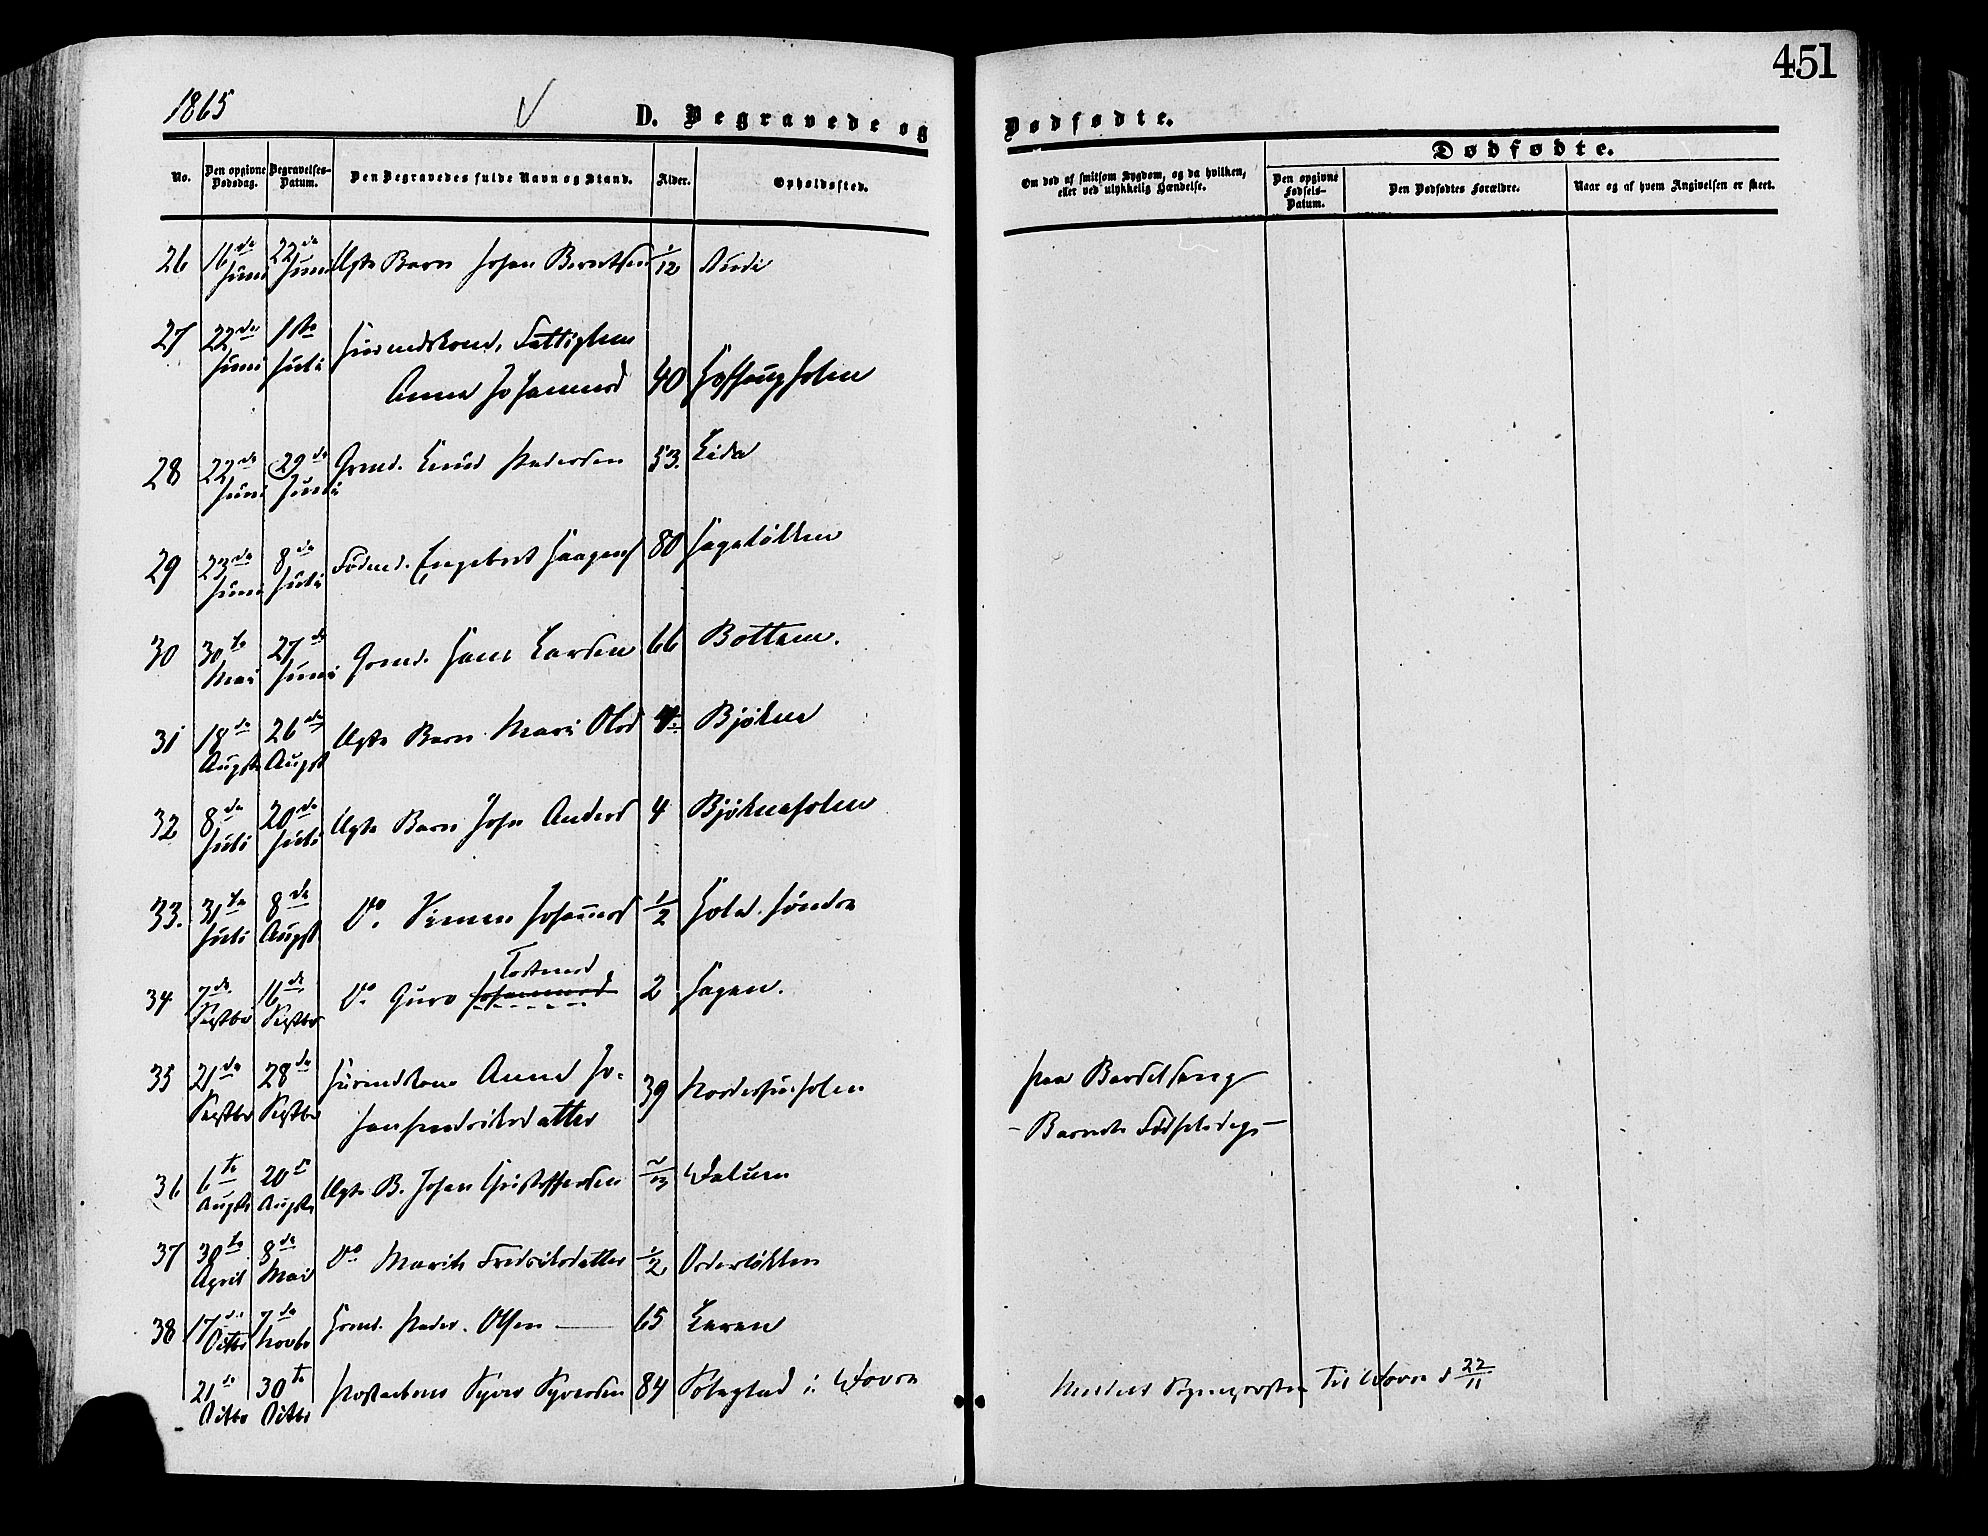 451
1865
D. Begravede og Dødfødte.
Dødfødte.
No.
Den opgivne Dødsdag.
Begravelses-Datum.
Den Begravedes fulde Navn og Stand.
Alder.
Opholdssted.
Om død af smitsom Sygdom, og da hvilken, eller ved ulykkelig Hændelse.
Den opgivne Fødsels-Datum.
Den Dødfødtes Forældre.
Naar og af hvem Angivelsen er skeet.
26 16de Juni 22de Juni Ægte Barn Johan Berntsen 1/12
27 22de Juni 1ste Juli Huusmdskone, Fattiglem
Anne Johannesd 40
28 22de Juni 29de Grmd. Knud Pedersen 53. Lida
29 23de Juni 8de Juli Fødmd. Engebret Haagens 80 Hageløkken
30 30te Mai 27de Juni Grmd. Hans Larsen 66 Bottem.
31 18de Augst 26de Augst Ægte Barn Mari Olsd 4 Bjøkne
32 8de Juli 20de Juli Ægte Barn John Anders 4 Bjøkneholen
33. 31te Juli 8de Augst Do. Simen Johannesd 1/2 søndre
Tostensd
34 7de Septbr 16de Septbr Do Guro Johannesd 2 Hagen.
35 21de Septbr 28de Septbr Huusmdkone Anne Jo-
hanhendriksdatter 39 Nordestueholen
paa Barselseng
- Barnets Fødselsdag -
36 6te Augst 20de Augst Ægte B. Johan Christoffersen Dalum
37 30te April 8de Mai Do Marit Fredriksdatter 1/2
38 17de Octbr 7de Novbr Grmd. Peder Olsen — 65
21de Octbr 30te Octbr Syver Syversen 84 i Dovre
Meldt Til Dovre d 22/11